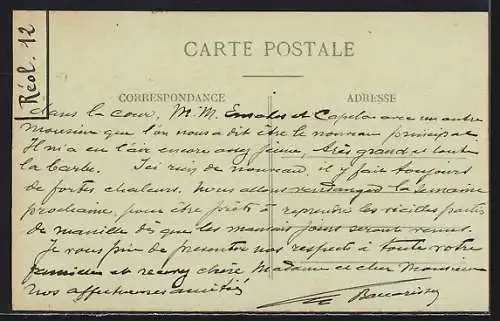 Réol. 12
CARTE POSTALE
CORRESPONDANCE
ADRESSE
dans la cour, M.M. et Capela avec un autre
Monsieur que l'on nous a dit être le nouveau principal
Il m'a eu l'air encore assez jeune, très grand et toute
la barbe. Ici rien de nouveau, il y fait toujours
de fortes chaleurs. Nous allons vendanger la semaine
prochaine, pour être prêts à reprendre les vieilles parties
de manille dès que les mauvais jours seront venus.
Je vous prie de présenter nos respects à toute votre
famille et recevez chère Madame et cher Monsieur
nos affectueuses amitiés